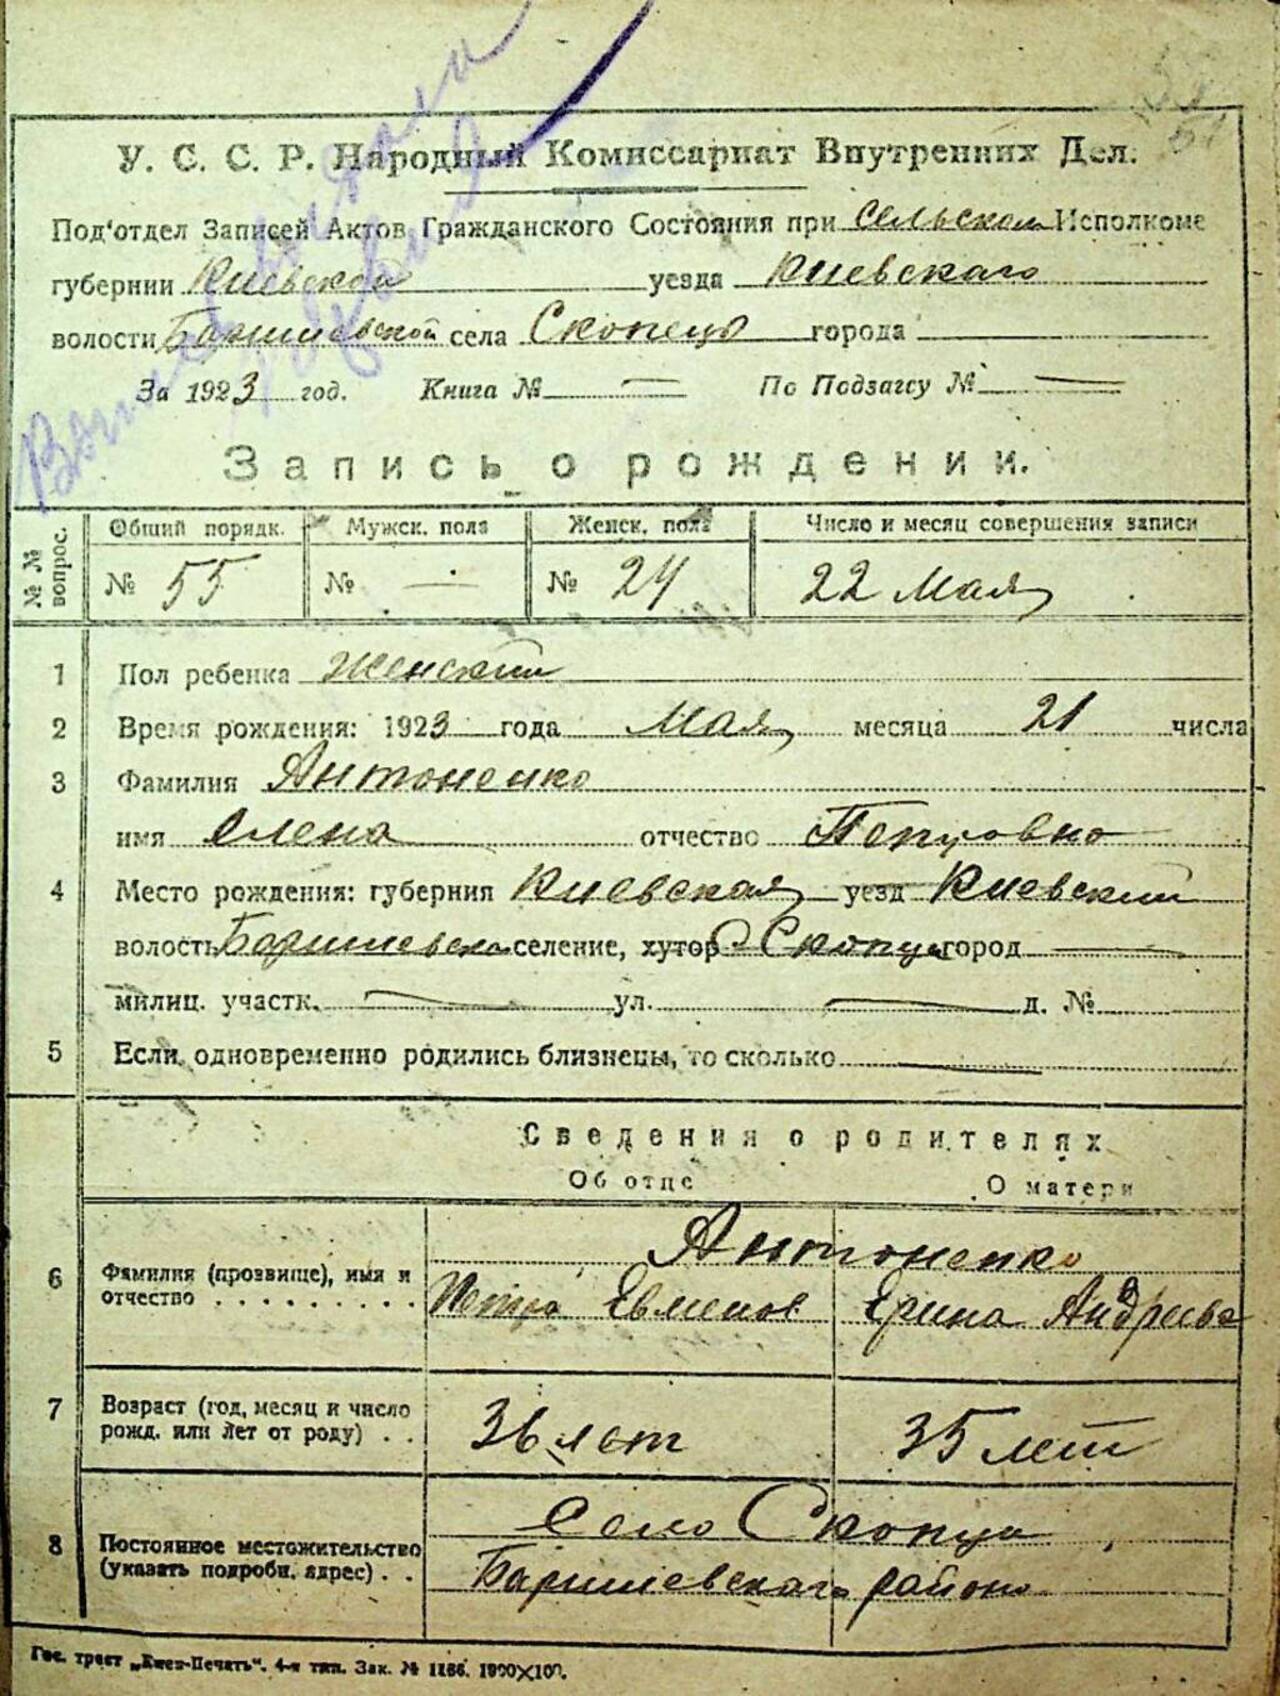 У. С. С. Р. Народный Комиссариат Внутренних Дел.
Под'отдел Записей Актов Гражданского Состояния при Сельском Исполкоме
губернии Киевской уезда Киевскаго
волости Баришевской села Скопецъ города
За 1923 год. Книга № — По Подзагсу № —
Запись о рождении.
№ № вопрос. Общий порядк. Мужск. пола Женск. пола Число и месяц совершения записи
№ 55 № — № 24 22 Мая
1 Пол ребенка Женский
2 Время рождения: 1923 года Мая месяца 21 числа
3 Фамилия Антоненко
имя Олена отчество Петровна
4 Место рождения: губерния Киевская уезд Киевский
волость Баришевска селение, хутор Скопця город —
милиц. участк. — ул. — д. №
5 Если одновременно родились близнецы, то сколько —
Сведения о родителях
Об отце О матери
Антоненко
6 Фамилия (прозвище), имя и
отчество . . . . . . . . . Петро Евменов Ярина Андреева
7 Возраст (год, месяц и число
рожд. или лет от роду) . . 36 лет 35 лет
Село Скопци
8 Постоянное местожительство
(указать подробн. адрес) . . Баришевскаго району
Гос. трест „Киев-Печать“. 4-я тип. Зак. № 1166. 1900×100.